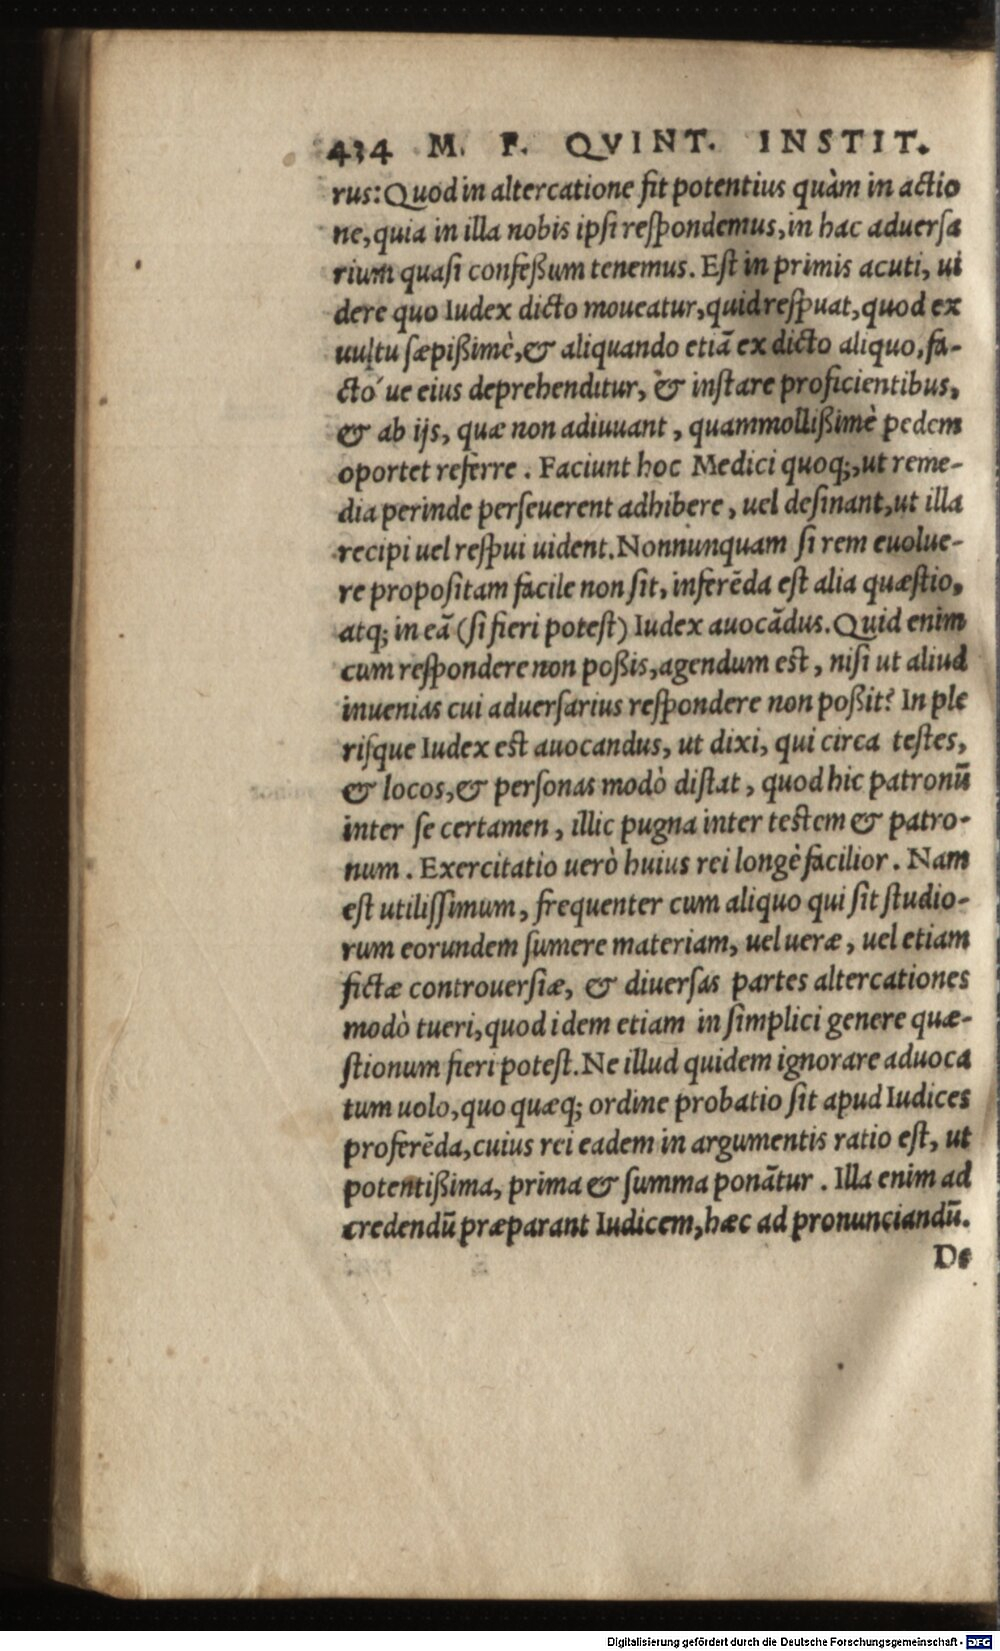 434 M. F. QVINT. INSTIT.
rus: Quod in altercatione fit potentius quàm in actio
ne, quia in illa nobis ipsi respondemus, in hac aduersa
rium quasi confeßum tenemus. Est in primis acuti, ui
dere quo Iudex dicto moueatur, quid respuat, quod ex
uultu sæpißimè, & aliquando etiā ex dicto aliquo, fa-
ctó ue eius deprehenditur, & instare proficientibus,
& ab ijs, quæ non adiuuant, quammollißimè pedem
oportet referre. Faciunt hoc Medici quoq;, ut reme-
dia perinde perseuerent adhibere, uel desinant, ut illa
recipi uel respui uident. Nonnunquam si rem euolue-
re propositam facile non sit, inferēda est alia quæstio,
atq; in eā (si fieri potest) Iudex auocādus. Quid enim
cum respondere non poßis, agendum est, nisi ut aliud
inuenias cui aduersarius respondere non poßit? In ple
risque Iudex est auocandus, ut dixi, qui circa testes,
& locos, & personas modò distat, quod hic patronū
inter se certamen, illic pugna inter testem & patro-
num. Exercitatio uerò huius rei longè facilior. Nam
est utilissimum, frequenter cum aliquo qui sit studio-
rum eorundem sumere materiam, uel ueræ, uel etiam
fictæ controuersiæ, & diuersas partes altercationes
modò tueri, quod idem etiam in simplici genere quæ-
stionum fieri potest. Ne illud quidem ignorare aduoca
tum uolo, quo quæq; ordine probatio sit apud Iudices
proferēda, cuius rei eadem in argumentis ratio est, ut
potentißima, prima & summa ponātur. Illa enim ad
credendū præparant Iudicem, hæc ad pronunciandū.
De
Digitalisierung gefördert durch die Deutsche Forschungsgemeinschaft - DFG